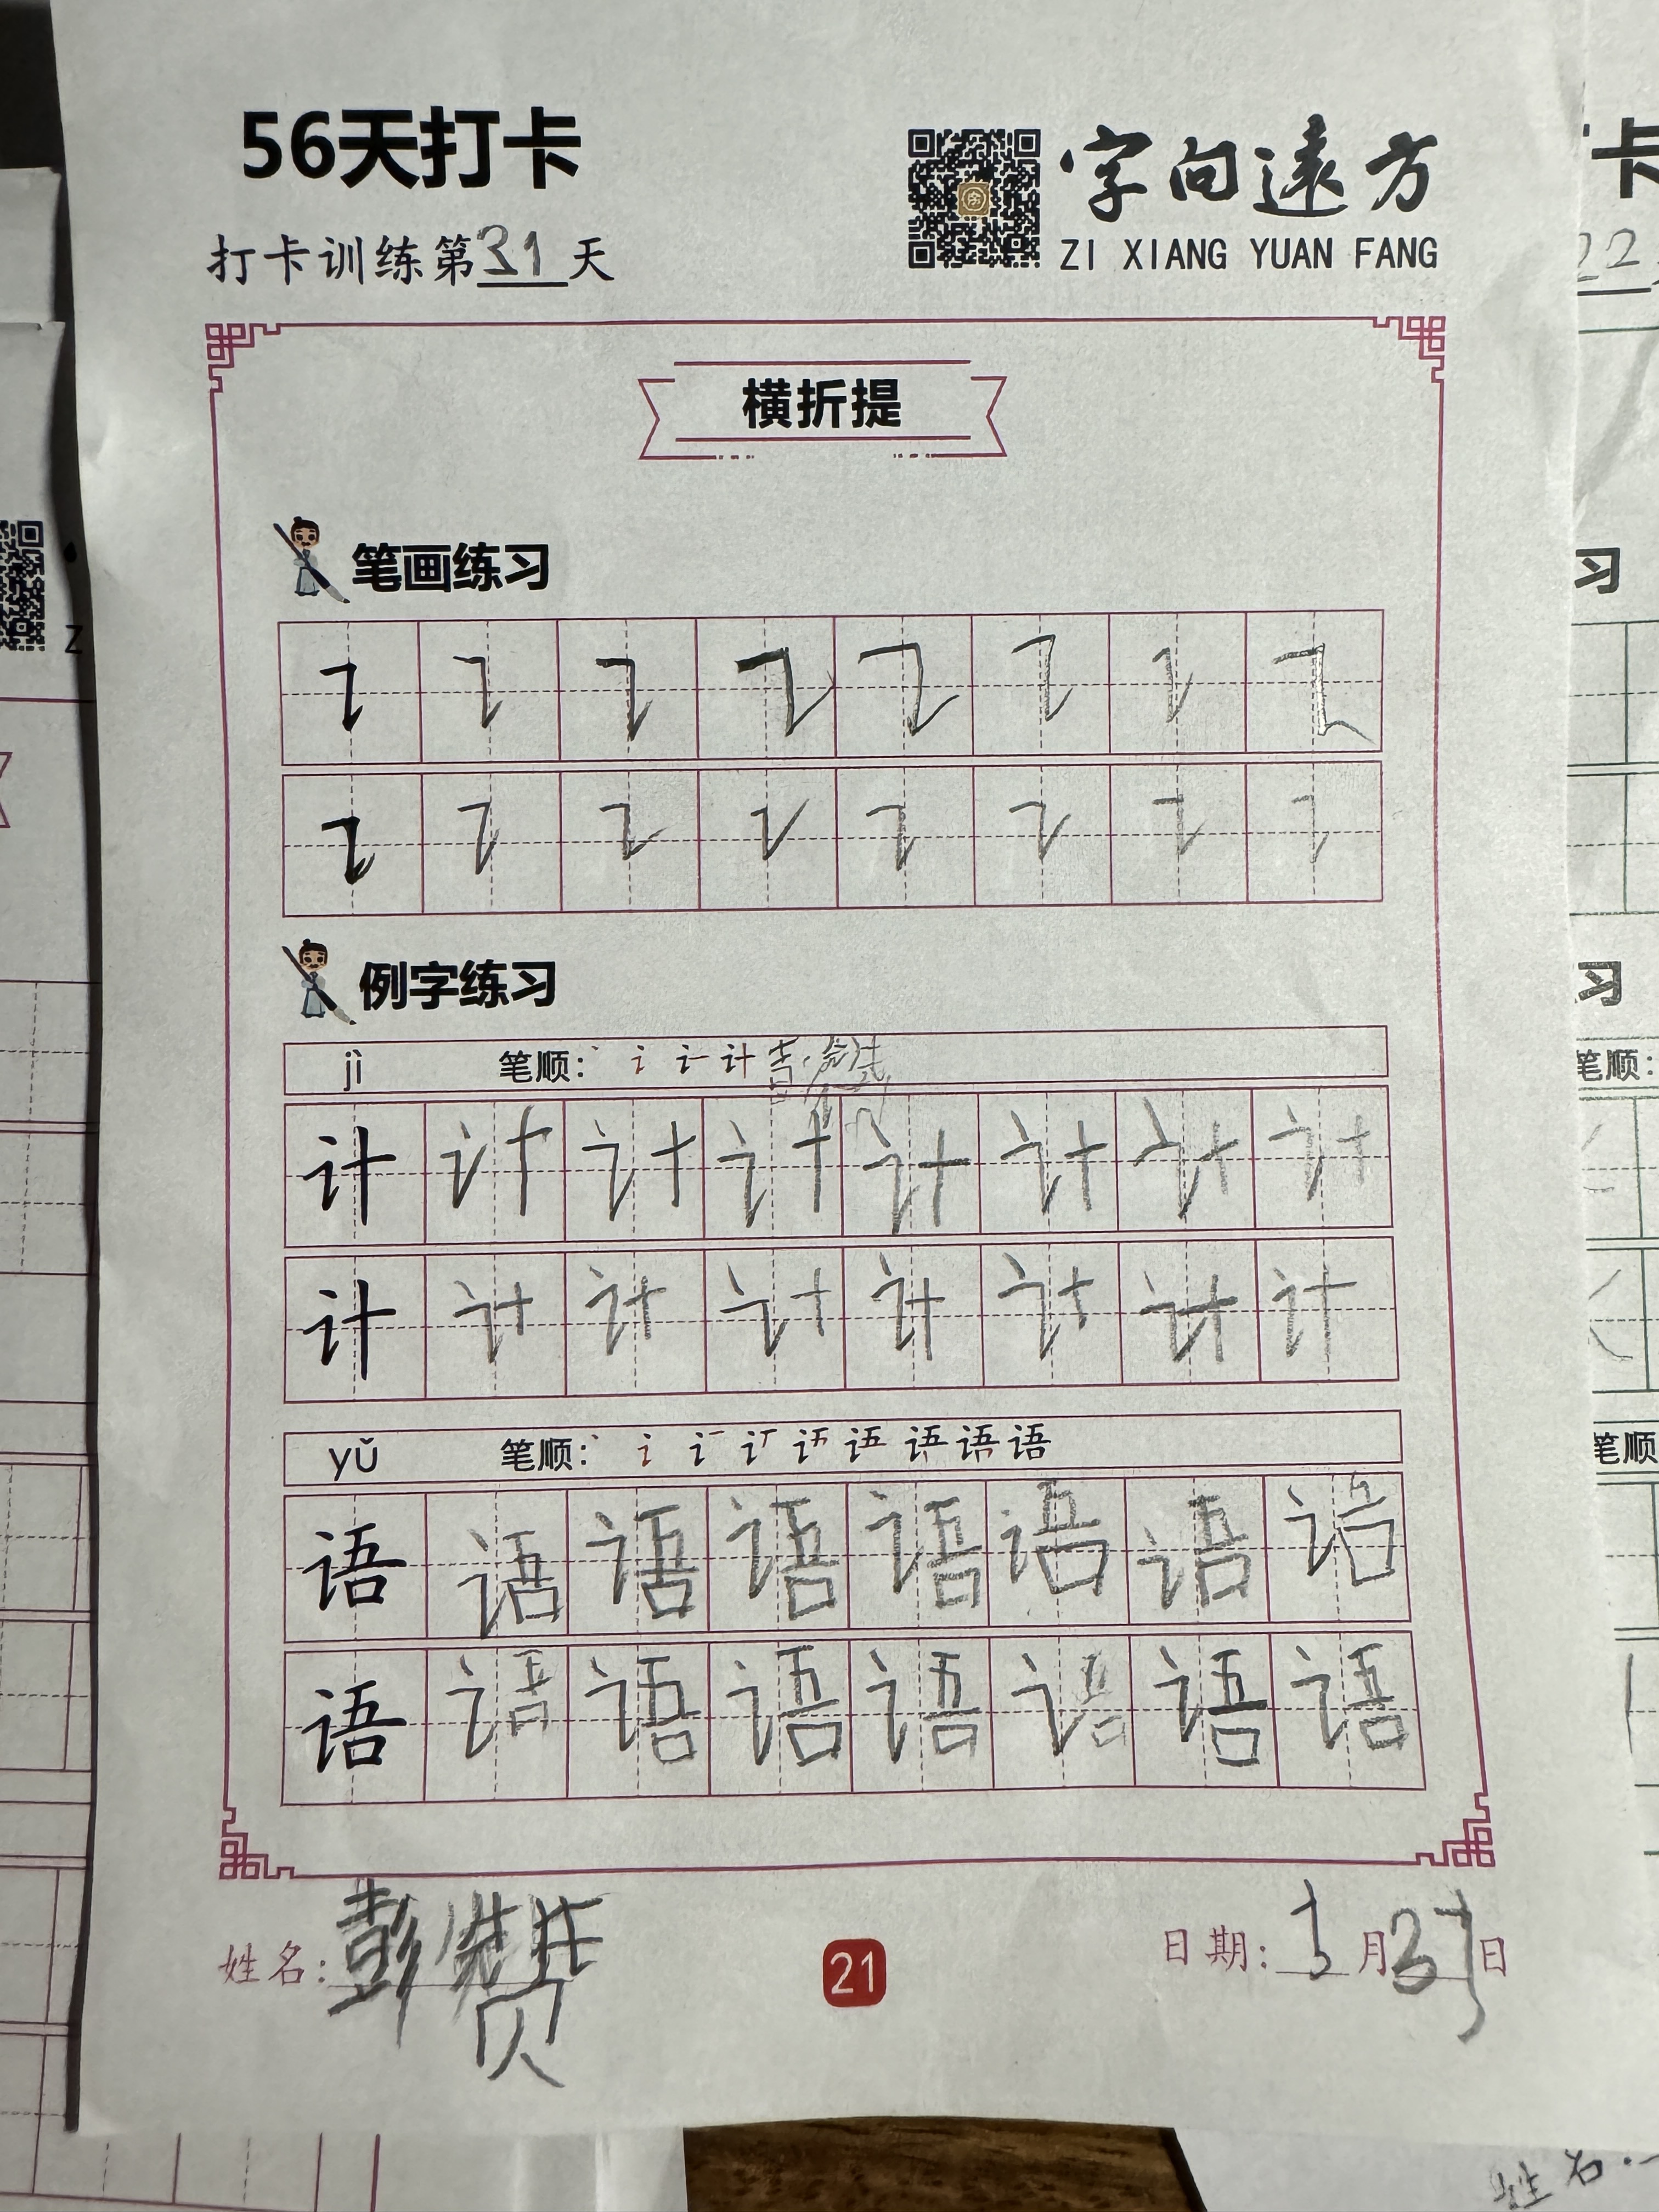 56天打卡
字向遠方
ZI XIANG YUAN FANG
打卡训练第31天
横折提
笔画练习
例字练习
jì 笔顺:
计 计 计 计 计 计 计 计
计 计 计 计 计 计 计 计
yǔ 笔顺: 语
语 语 语 语 语 语 语 语
语 语 语 语 语 语 语 语
姓名: 彭赞
21
日期: 月 日
卡
22
习
习
笔顺:
笔顺
Z